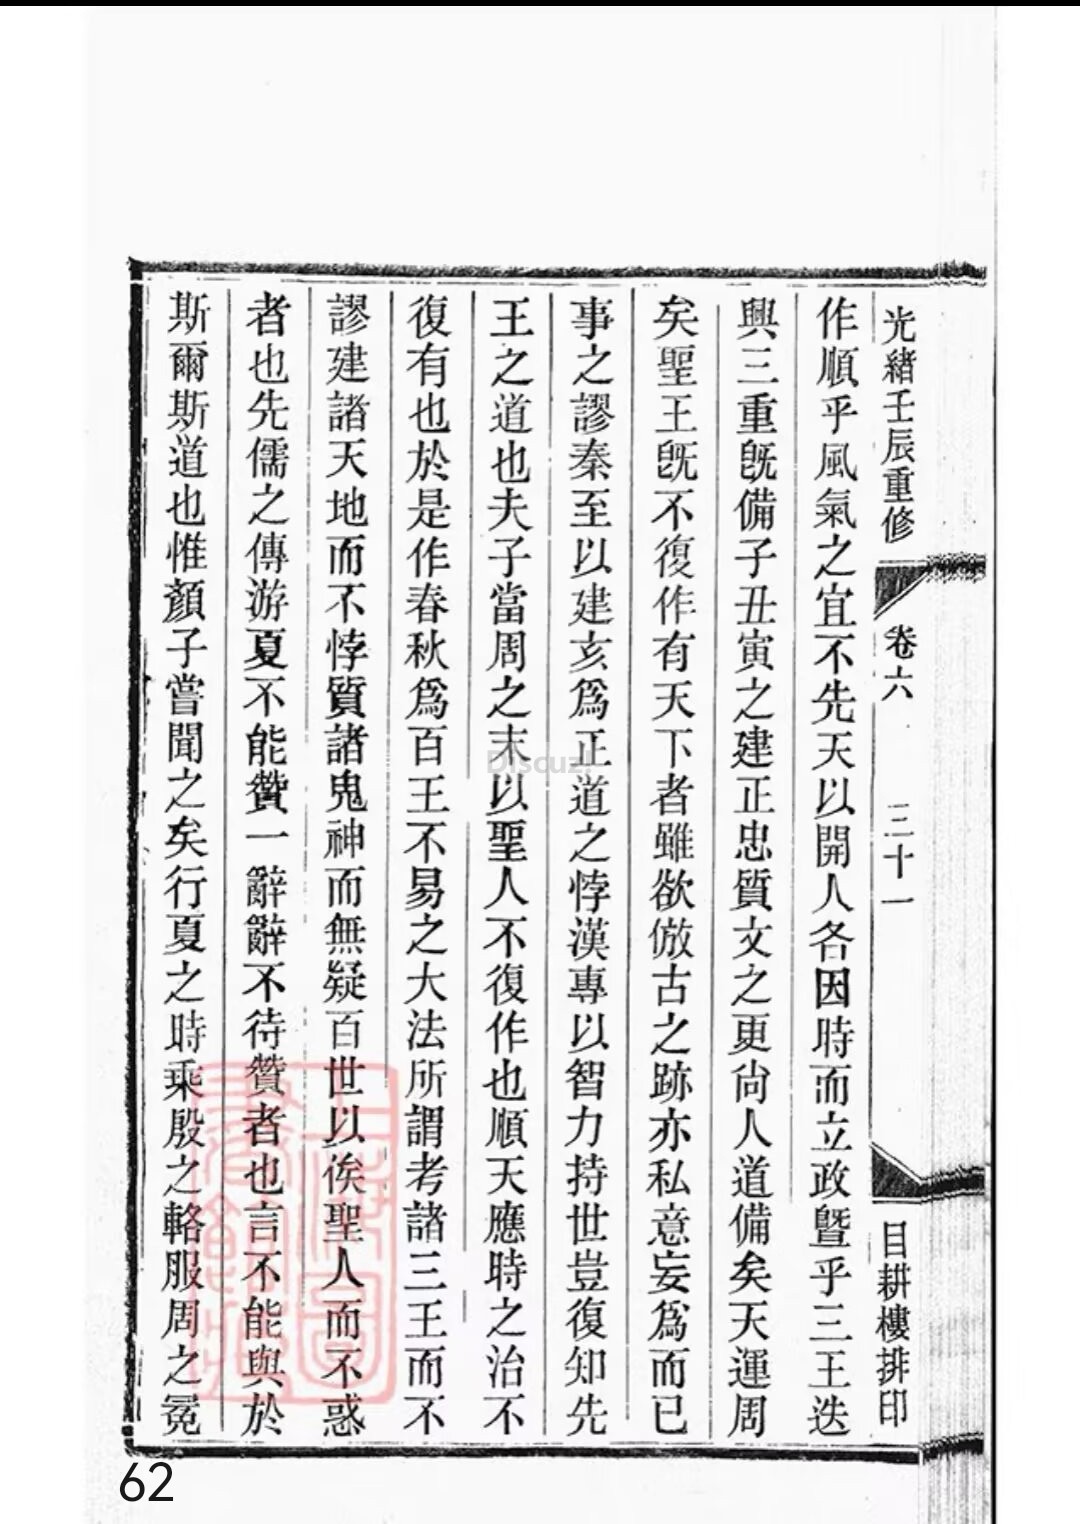 光緒壬辰重修 卷六 三十一 目耕樓排印
作順乎風氣之宜不先天以開人各因時而立政曁乎三王迭
興三重旣備子丑寅之建正忠質文之更尙人道備矣天運周
矣聖王旣不復作有天下者雖欲倣古之跡亦私意妄爲而已
事之謬秦至以建亥爲正道之悖漢專以智力持世豈復知先
王之道也夫子當周之末以聖人不復作也順天應時之治不
復有也於是作春秋爲百王不易之大法所謂考諸三王而不
謬建諸天地而不悖質諸鬼神而無疑百世以俟聖人而不惑
者也先儒之傳游夏不能贊一辭辭不待贊者也言不能與於
斯爾斯道也惟顏子嘗聞之矣行夏之時乘殷之輅服周之冕
Discuz!
62